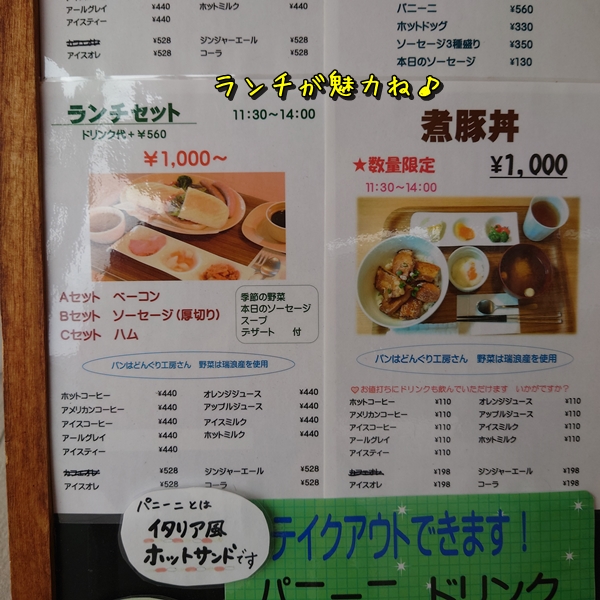 アールグレイ ¥440 ホットミルク ¥440
アイスティー ¥440
カフェオレ ¥528 ジンジャーエール ¥528
アイスオレ ¥528 コーラ ¥528
パニーニ ¥560
ホットドッグ ¥330
ソーセージ3種盛り ¥350
本日のソーセージ ¥130
ランチが魅力ね♪
ランチセット 11:30~14:00
ドリンク代+¥560
¥1,000~
Aセット ベーコン
Bセット ソーセージ(厚切り)
Cセット ハム
季節の野菜
本日のソーセージ
スープ
デザート 付
パンはどんぐり工房さん 野菜は瑞浪産を使用
ホットコーヒー ¥440 オレンジジュース ¥440
アメリカンコーヒー ¥440 アップルジュース ¥440
アイスコーヒー ¥440 アイスミルク ¥440
アールグレイ ¥440 ホットミルク ¥440
アイスティー ¥440
カフェオレ ¥528 ジンジャーエール ¥528
アイスオレ ¥528 コーラ ¥528
煮豚丼
★数量限定 ¥1,000
11:30~14:00
パンはどんぐり工房さん 野菜は瑞浪産を使用
♡お値打ちにドリンクも飲んでいただけます いかがですか?
ホットコーヒー ¥110 オレンジジュース ¥110
アメリカンコーヒー ¥110 アップルジュース ¥110
アイスコーヒー ¥110 アイスミルク ¥110
アールグレイ ¥110 ホットミルク ¥110
アイスティー ¥110
カフェオレ ¥198 ジンジャーエール ¥198
アイスオレ ¥198 コーラ ¥198
パニーニとは
イタリア風
ホットサンドです
テイクアウトできます!
パニーニ ドリンク